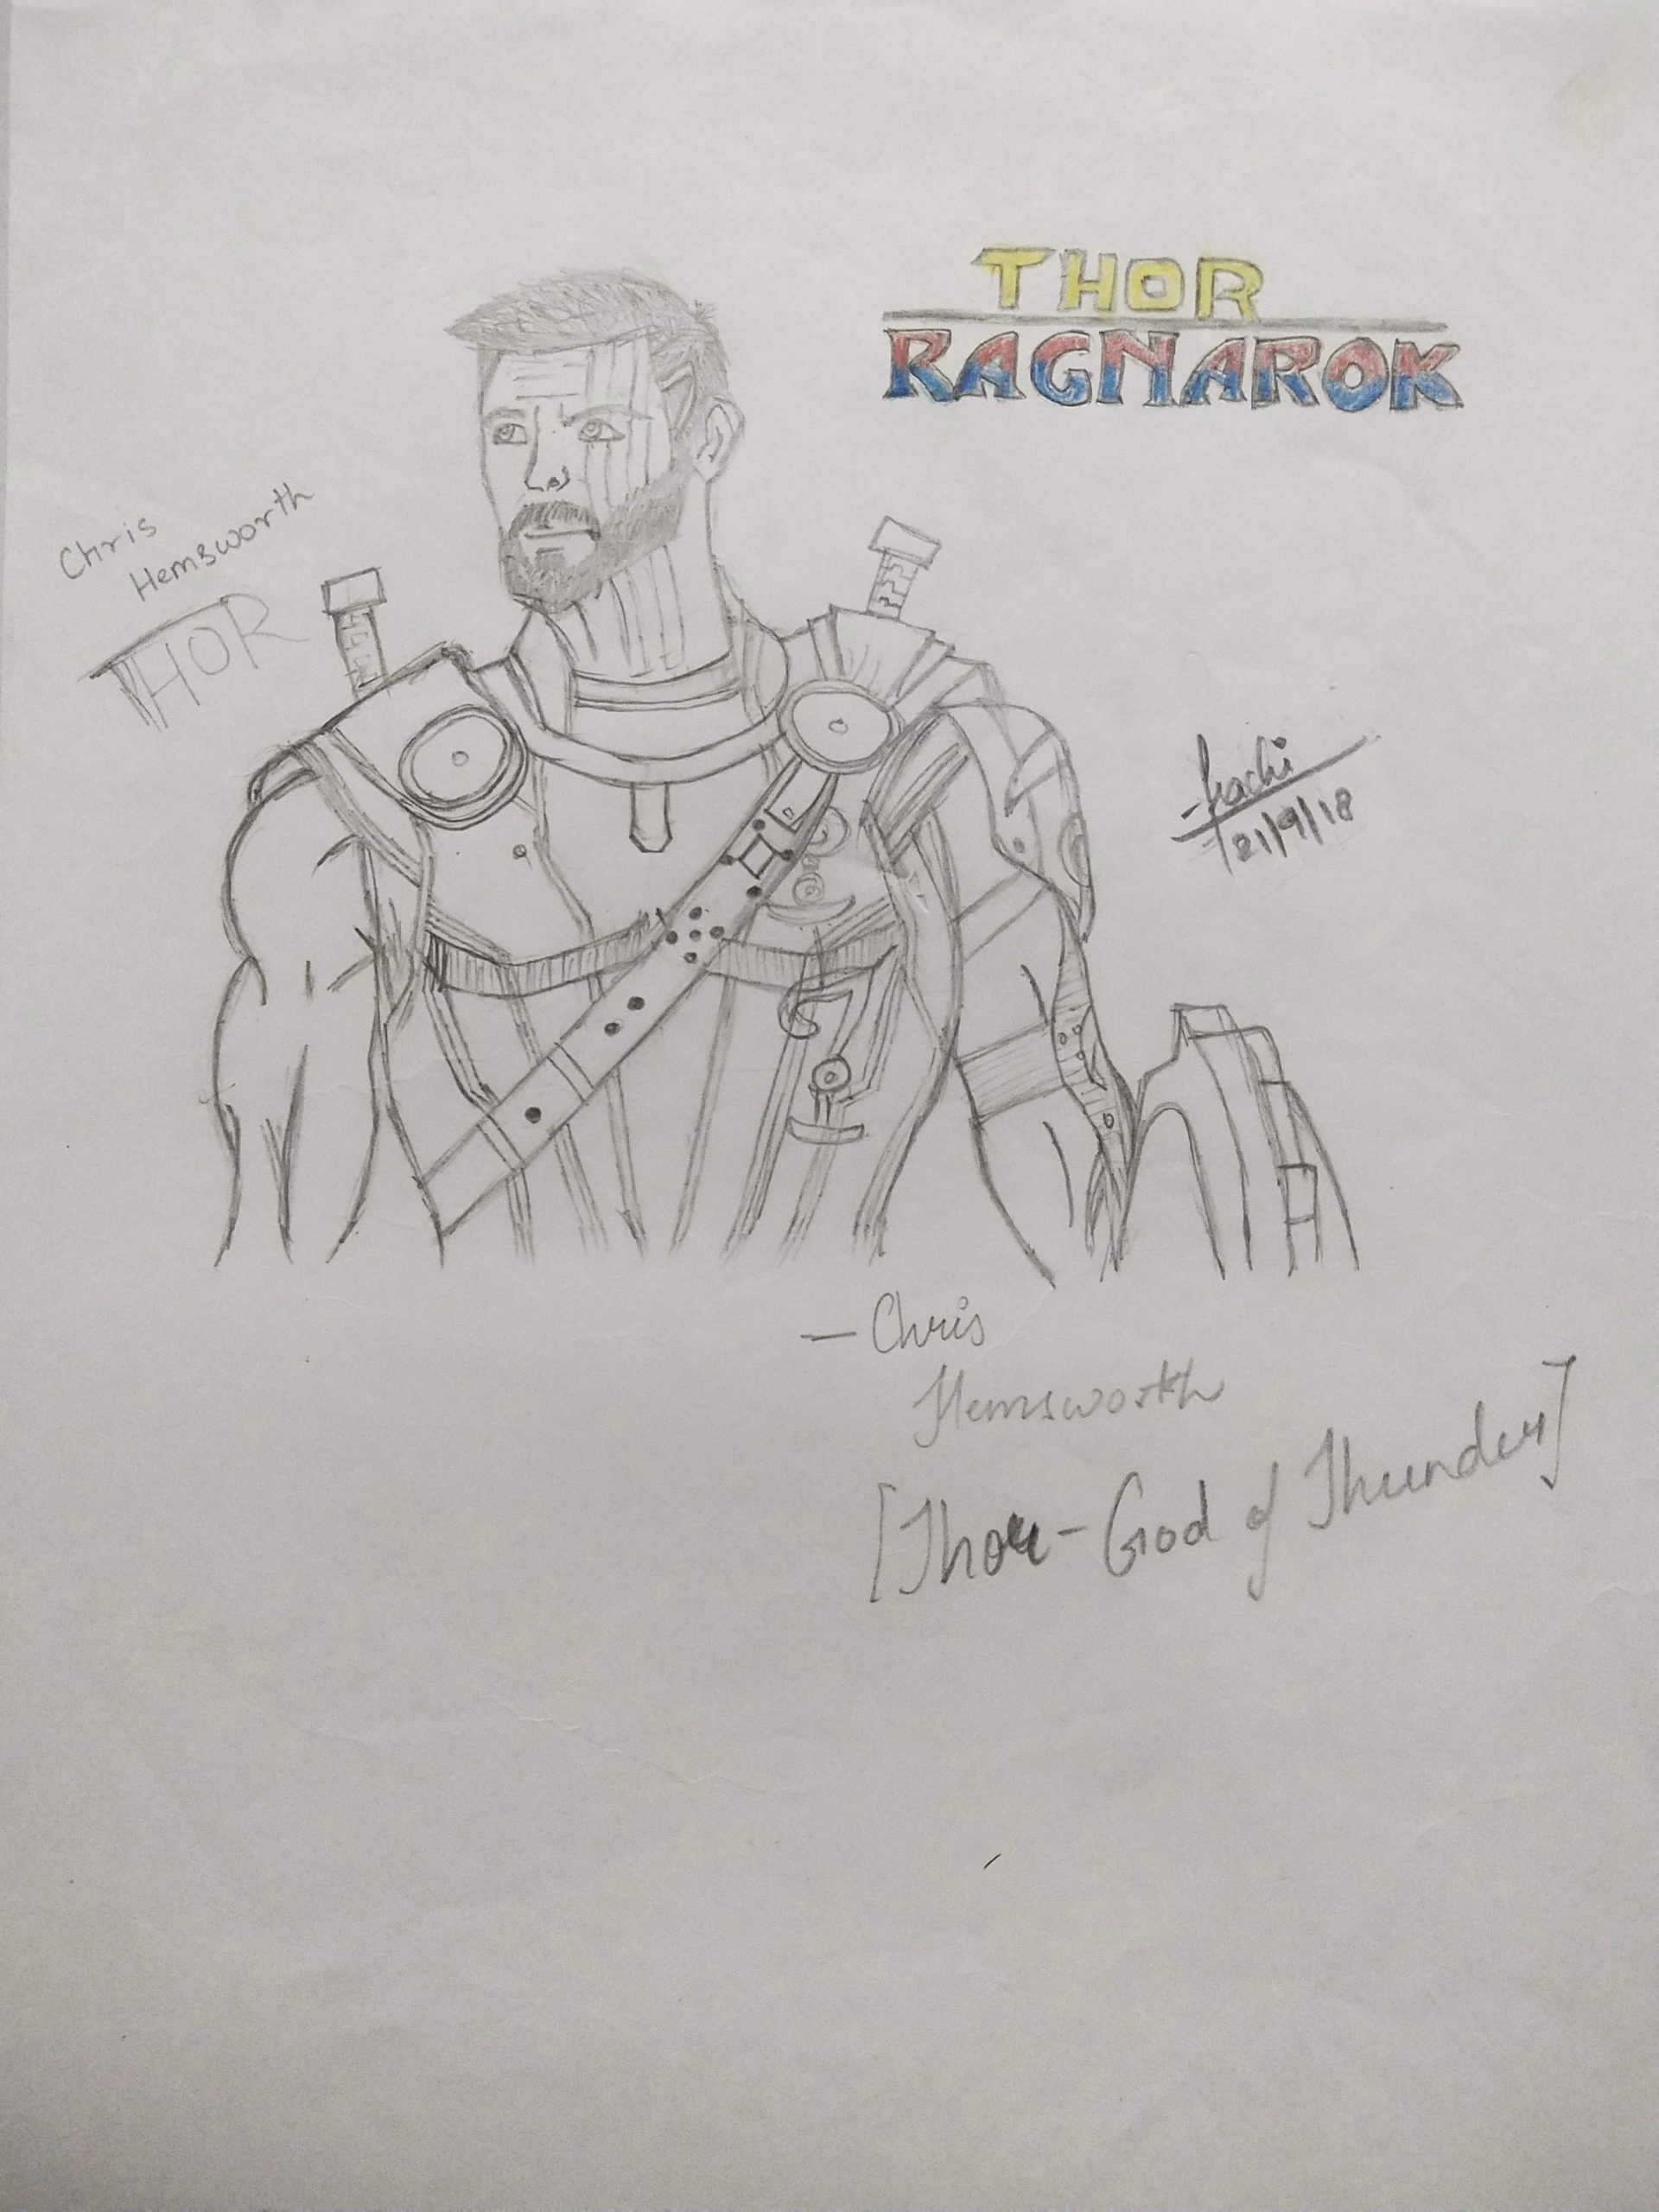 THOR
RAGNAROK
Chris
Hemsworth
THOR
21/9/18
— Chris
Hemsworth
[Thor - God of Thunder]